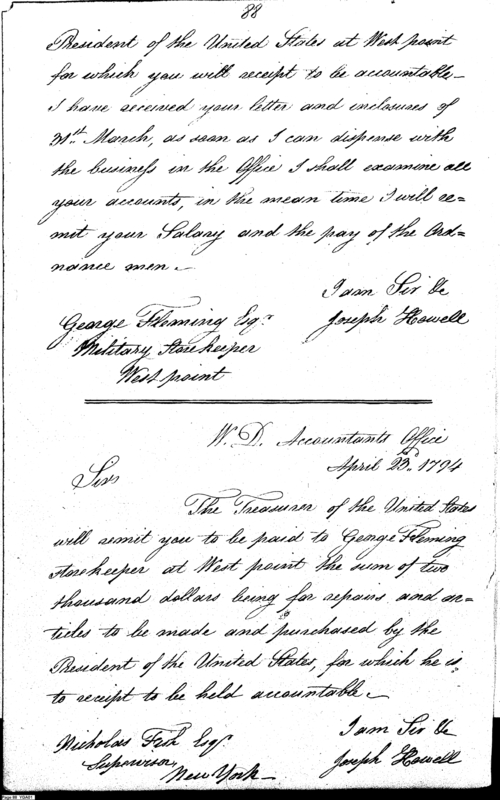 88
President of the United States at West point
for which you will receipt to be accountable—
I have received your letter and inclosures of
31st March, as soon as I can dispense with
the business in the Office I shall examine all
your accounts, in the mean time I will re=
mit your Salary and the pay of the Ord=
nance men.
I am Sir &c
George Fleming Esqr.
Joseph Howell
Military Storekeeper
West point
W. D. Accountants Office
April 23d. 1794
Sir
The Treasurer of the United States
will remit you to be paid to George Fleming
Storekeeper at West point the sum of two
thousand dollars being for repairs and ar=
ticles to be made and purchased by the
President of the United States, for which he is
to receipt to be held accountable.
I am Sir &c
Nicholas Fish Esqr.
Joseph Howell
Supervisor,
New York—